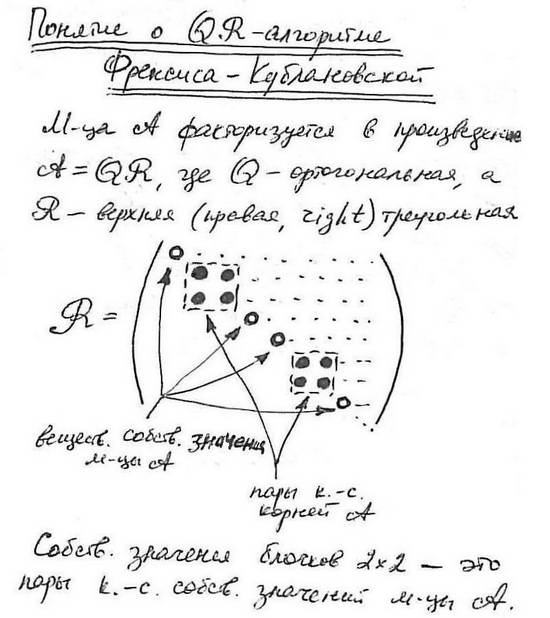 Понятие о QR-алгоритме
Френсиса-Кублановской
М-ца A факторизуется в произведение
A = QR, где Q - ортогональная, а
R - верхняя (правая, right) треугольная
R =
веществ. собств. значения
м-цы A
пары к.-с.
корней A
Собств. значения блоков 2×2 — это
пары к.-с. собств. значений м-цы A.